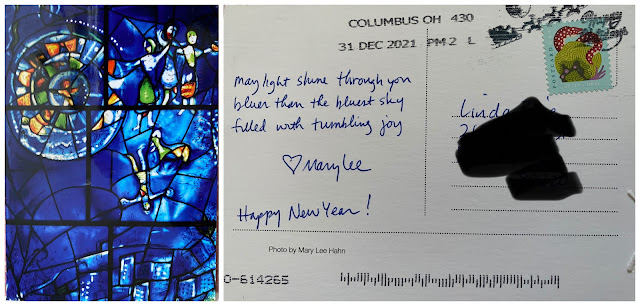 COLUMBUS OH 430
31 DEC 2021 PM 2 L
may light shine through you
bluer than the bluest sky
filled with tumbling joy
♡ Mary Lee
Happy New Year!
Linda
Photo by Mary Lee Hahn
0-614265